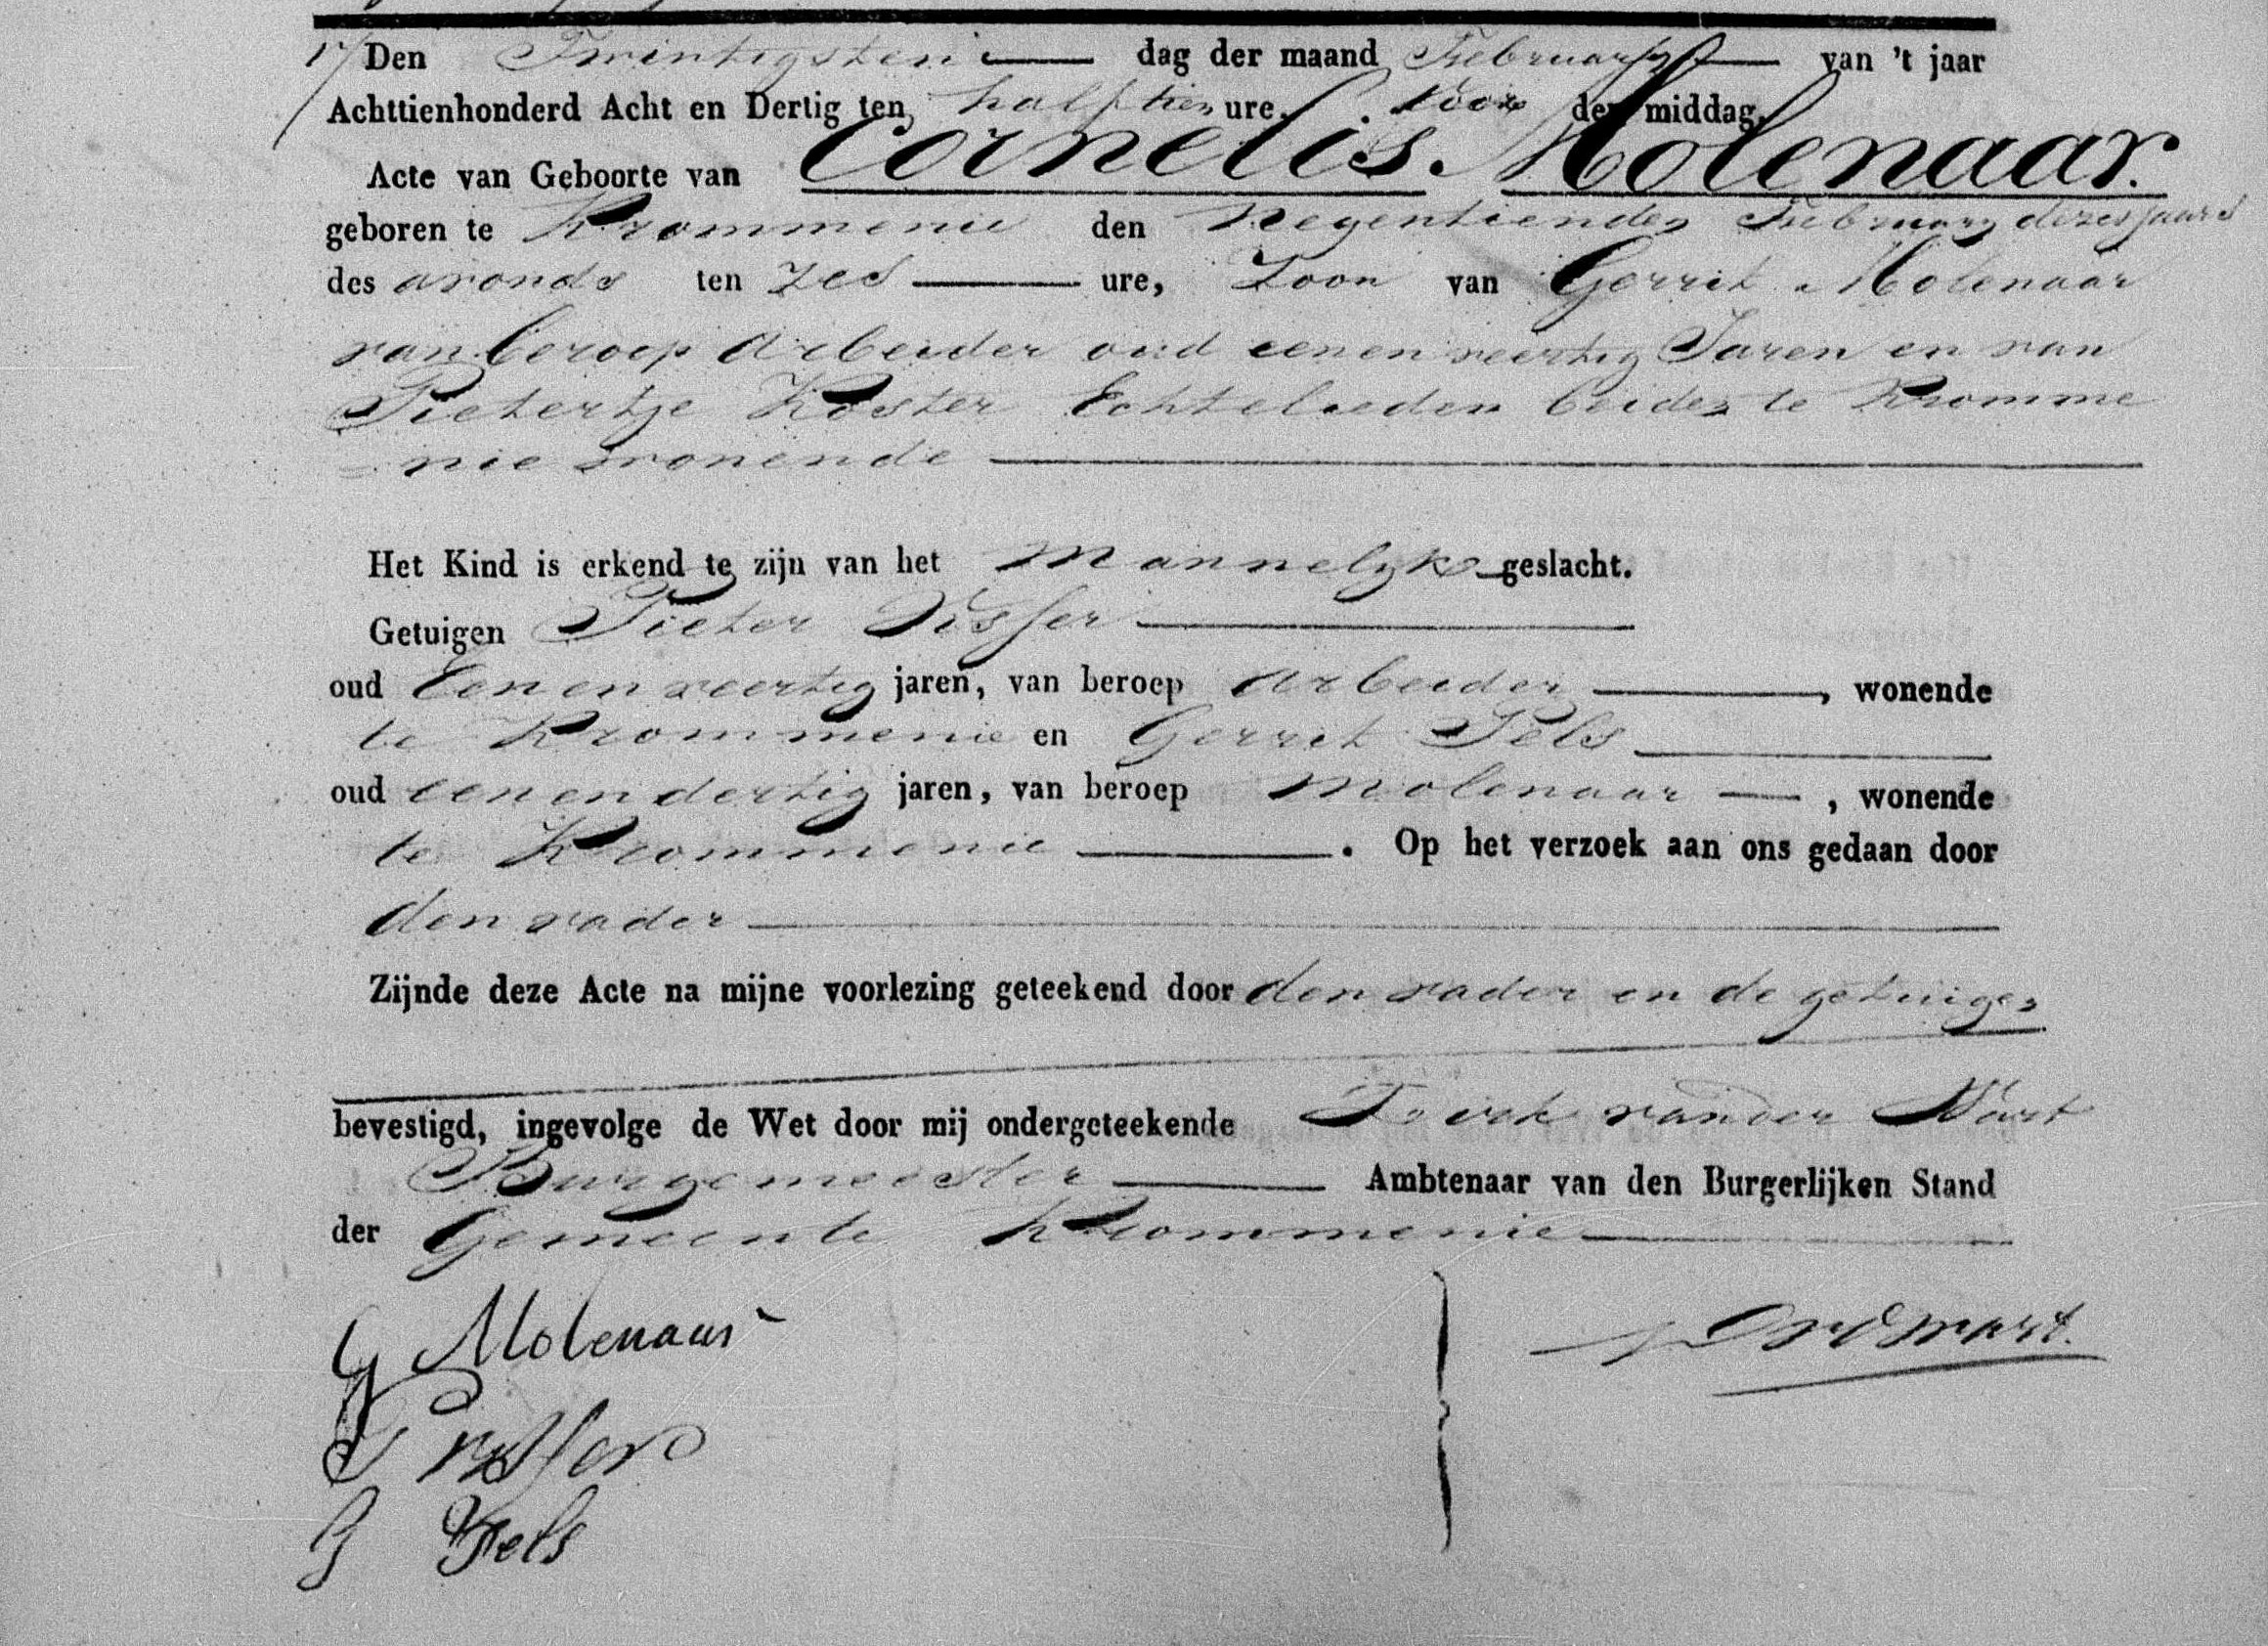 17 Den Twintigsten dag der maand Februarij van 't jaar
Achttienhonderd Acht en Dertig ten half tien ure, voor den middag,
Acte van Geboorte van Cornelis Molenaar.
geboren te Krommenie den Negentienden Februarij dezes jaars
des avonds ten zes ure, Zoon van Gerrit Molenaar
van beroep Arbeider oud een en veertig Jaren en van
Pietertje Koster Echtelieden beiden te Kromme
= nie wonende
Het Kind is erkend te zijn van het Mannelijke geslacht.
Getuigen Pieter Visser
oud Een en veertig jaren, van beroep Arbeider, wonende
te Krommenie en Gerrit Pels
oud een en dertig jaren, van beroep Molenaar, wonende
te Krommenie. Op het verzoek aan ons gedaan door
den vader
Zijnde deze Acte na mijne voorlezing geteekend door den vader en de getuigen
bevestigd, ingevolge de Wet door mij ondergeteekende van der
Burgemeester Ambtenaar van den Burgerlijken Stand
der Gemeente Krommenie
G Molenaar
P Visser
G Pels